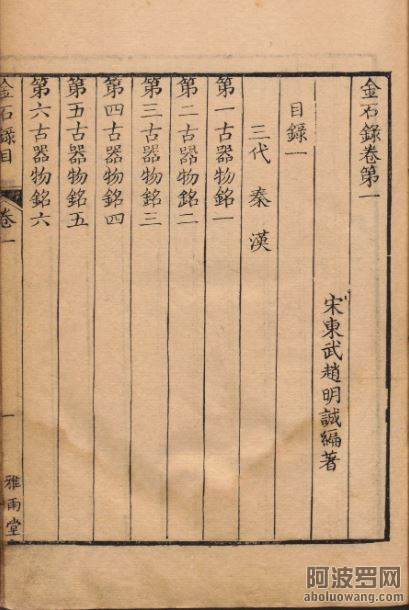 金石錄卷第一
宋東武趙明誠編著
目録一
三代　秦　漢
第一古器物銘一
第二古器物銘二
第三古器物銘三
第四古器物銘四
第五古器物銘五
第六古器物銘六
金石錄目
卷一
一
雅雨堂
阿波罗网
aboluowang.com